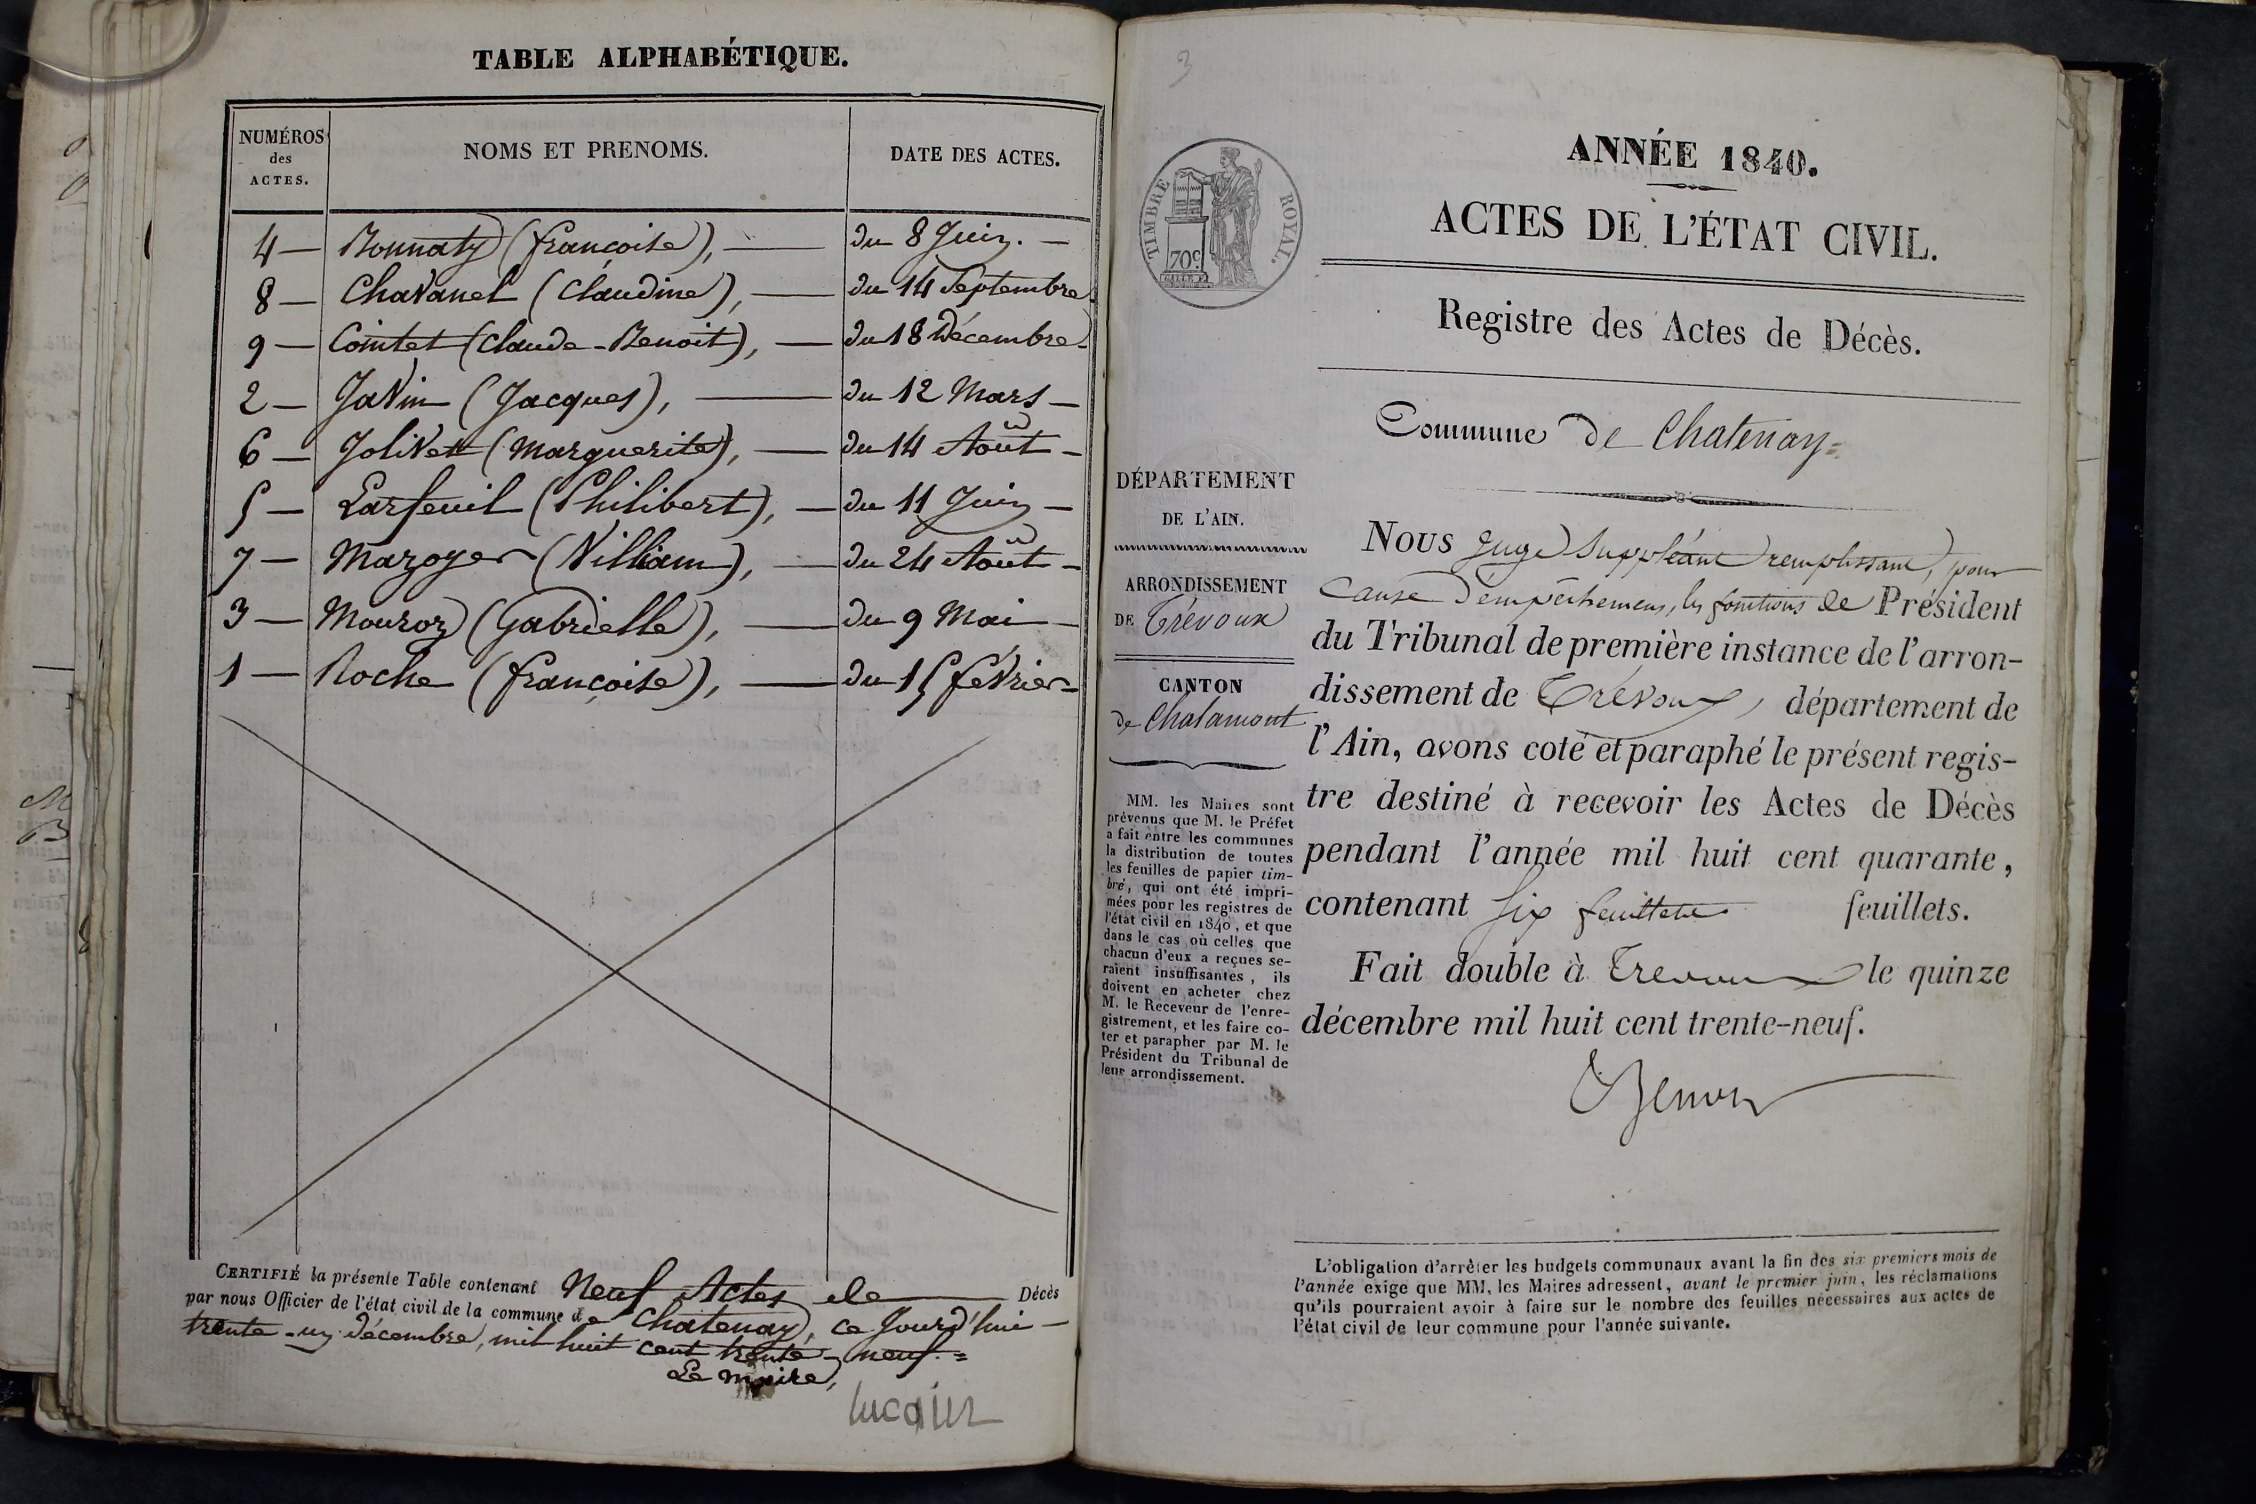 TABLE ALPHABÉTIQUE.
NUMÉROS des ACTES.
NOMS ET PRENOMS.
DATE DES ACTES.
4 — Bonnaty (françoise), — du 8 Juin. —
8 — Chavanel (Claudine), — du 14 Septembre
9 — Cointet (Claude-Benoit), — du 18 Décembre
2 — Javin (Jacques), — du 12 Mars —
6 — Jolivet (Marguerite), — du 14 Août —
5 — Larfeuil (Philibert), — du 11 Juin —
7 — Mazoyer (William), — du 24 Août —
3 — Mouroz (Gabrielle), — du 9 Mai —
1 — Roche (françoise), — du 15 février
CERTIFIÉ la présente Table contenant Neuf Actes de — Décès
par nous Officier de l'état civil de la commune de Chatenay, ce Jourd'hui —
trente-un décembre, mil huit cent trente-neuf. =
Le maire,
3
TIMBRE ROYAL.
70c
ANNÉE 1840.
ACTES DE L'ÉTAT CIVIL.
Registre des Actes de Décès.
Commune de Chatenay=
DÉPARTEMENT
DE L'AIN.
ARRONDISSEMENT
DE Trévoux
CANTON
de Chalamont
MM. les Maires sont
prévenus que M. le Préfet
a fait entre les communes
la distribution de toutes
les feuilles de papier tim-
bré, qui ont été impri-
mées pour les registres de
l'état civil en 1840, et que
dans le cas où celles que
chacun d'eux a reçues se-
raient insuffisantes, ils
doivent en acheter chez
M. le Receveur de l'enre-
gistrement, et les faire co-
ter et parapher par M. le
Président du Tribunal de
leur arrondissement.
Nous Juge Suppléant remplissant, pour
cause d'empêchement, les fonctions de Président
du Tribunal de première instance de l'arron-
dissement de Trévoux, département de
l'Ain, avons coté et paraphé le présent regis-
tre destiné à recevoir les Actes de Décès
pendant l'année mil huit cent quarante,
contenant Six feuillets feuillets.
Fait double à Trevoux le quinze
décembre mil huit cent trente-neuf.
L'obligation d'arrêter les budgets communaux avant la fin des six premiers mois de
l'année exige que MM. les Maires adressent, avant le premier juin, les réclamations
qu'ils pourraient avoir à faire sur le nombre des feuilles nécessaires aux actes de
l'état civil de leur commune pour l'année suivante.